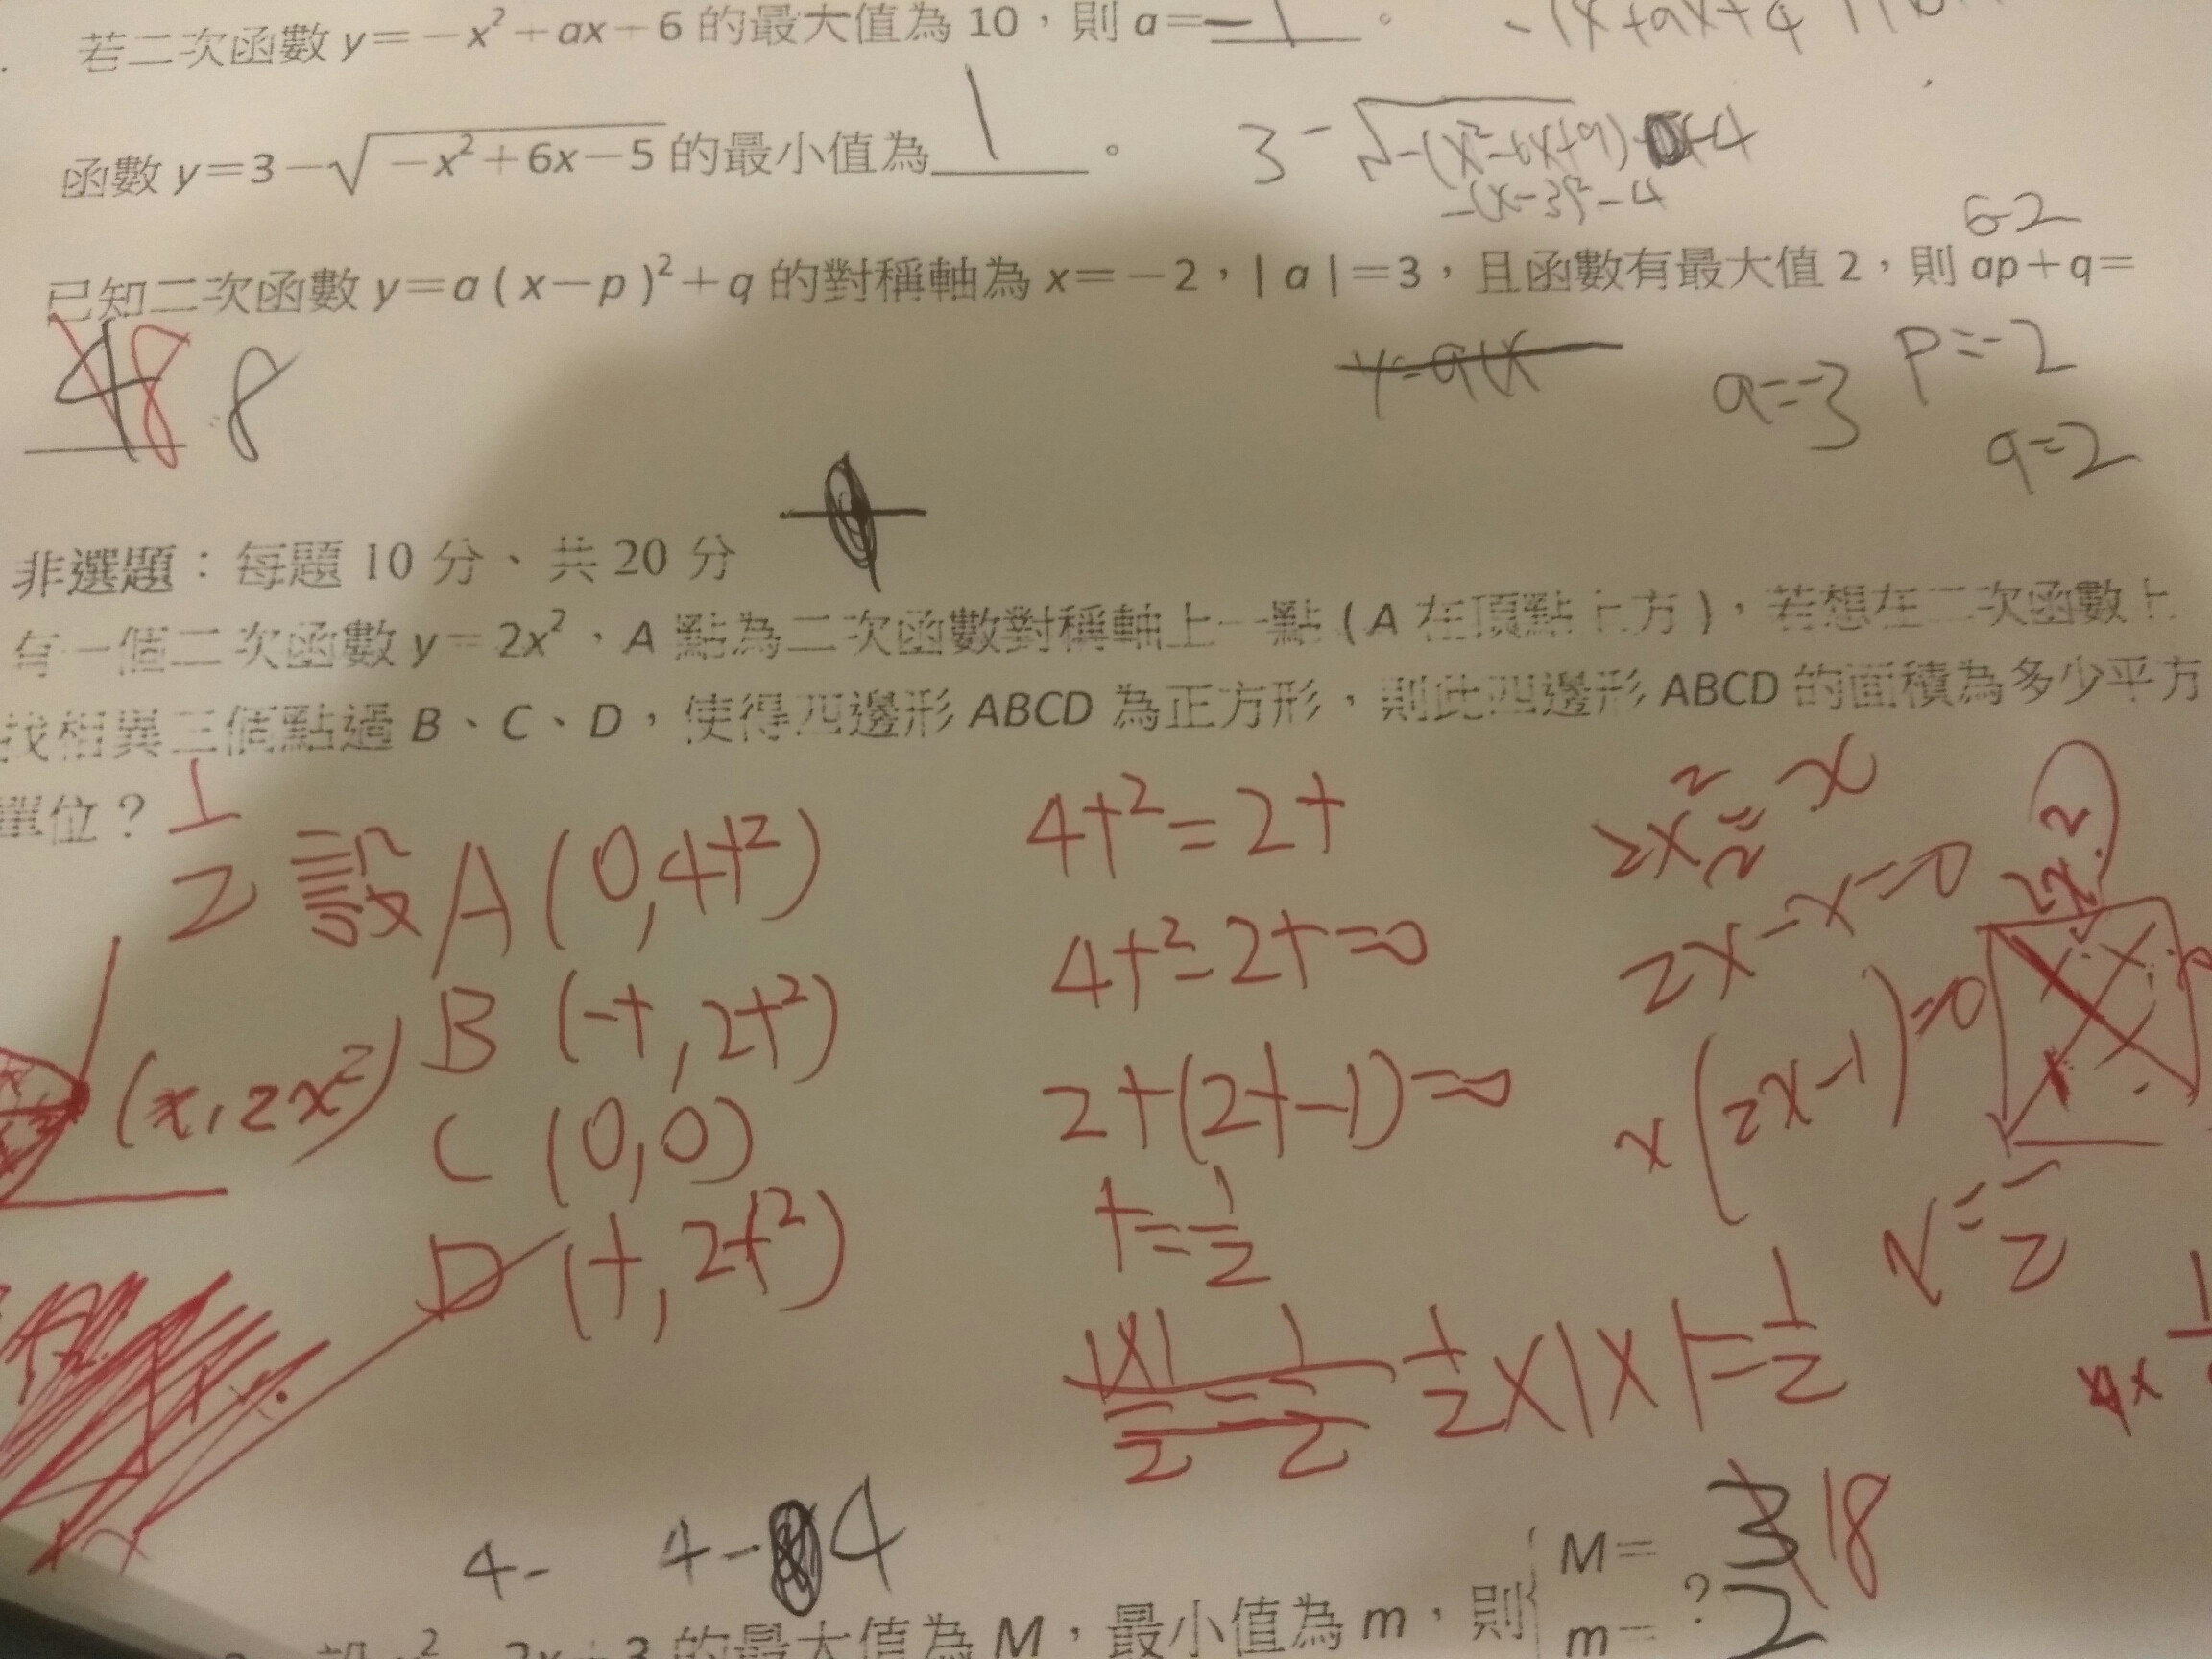 若二次函數 y=-x²+ax-6 的最大值為 10,則 a= -1 。
函數 y=3-√(-x²+6x-5) 的最小值為 1 。
3-√-(x²-6x+9) -4
-(x-3)²-4
6-2
已知二次函數 y=a(x-p)²+q 的對稱軸為 x=-2,|a|=3,且函數有最大值 2,則 ap+q=
4 8 8
y=a(x
a=-3
p=-2
q=2
非選題:每題 10 分、共 20 分
有一個二次函數 y=2x²,A 點為二次函數對稱軸上一點(A 在頂點上方),若想在二次函數上
找相異三個點過 B、C、D,使得四邊形 ABCD 為正方形,則此四邊形 ABCD 的面積為多少平方
單位?
1/2
設 A(0,4t²)
B (-t,2t²)
C (0,0)
D (t,2t²)
(x,2x²)
4t²=2t
4t²-2t=0
2t(2t-1)=0
t=1/2
1/2×1×1=1/2
x(2x-1)=0
4-
4-4
的最大值為 M,最小值為 m,則
M= 3 18
m= ? 2